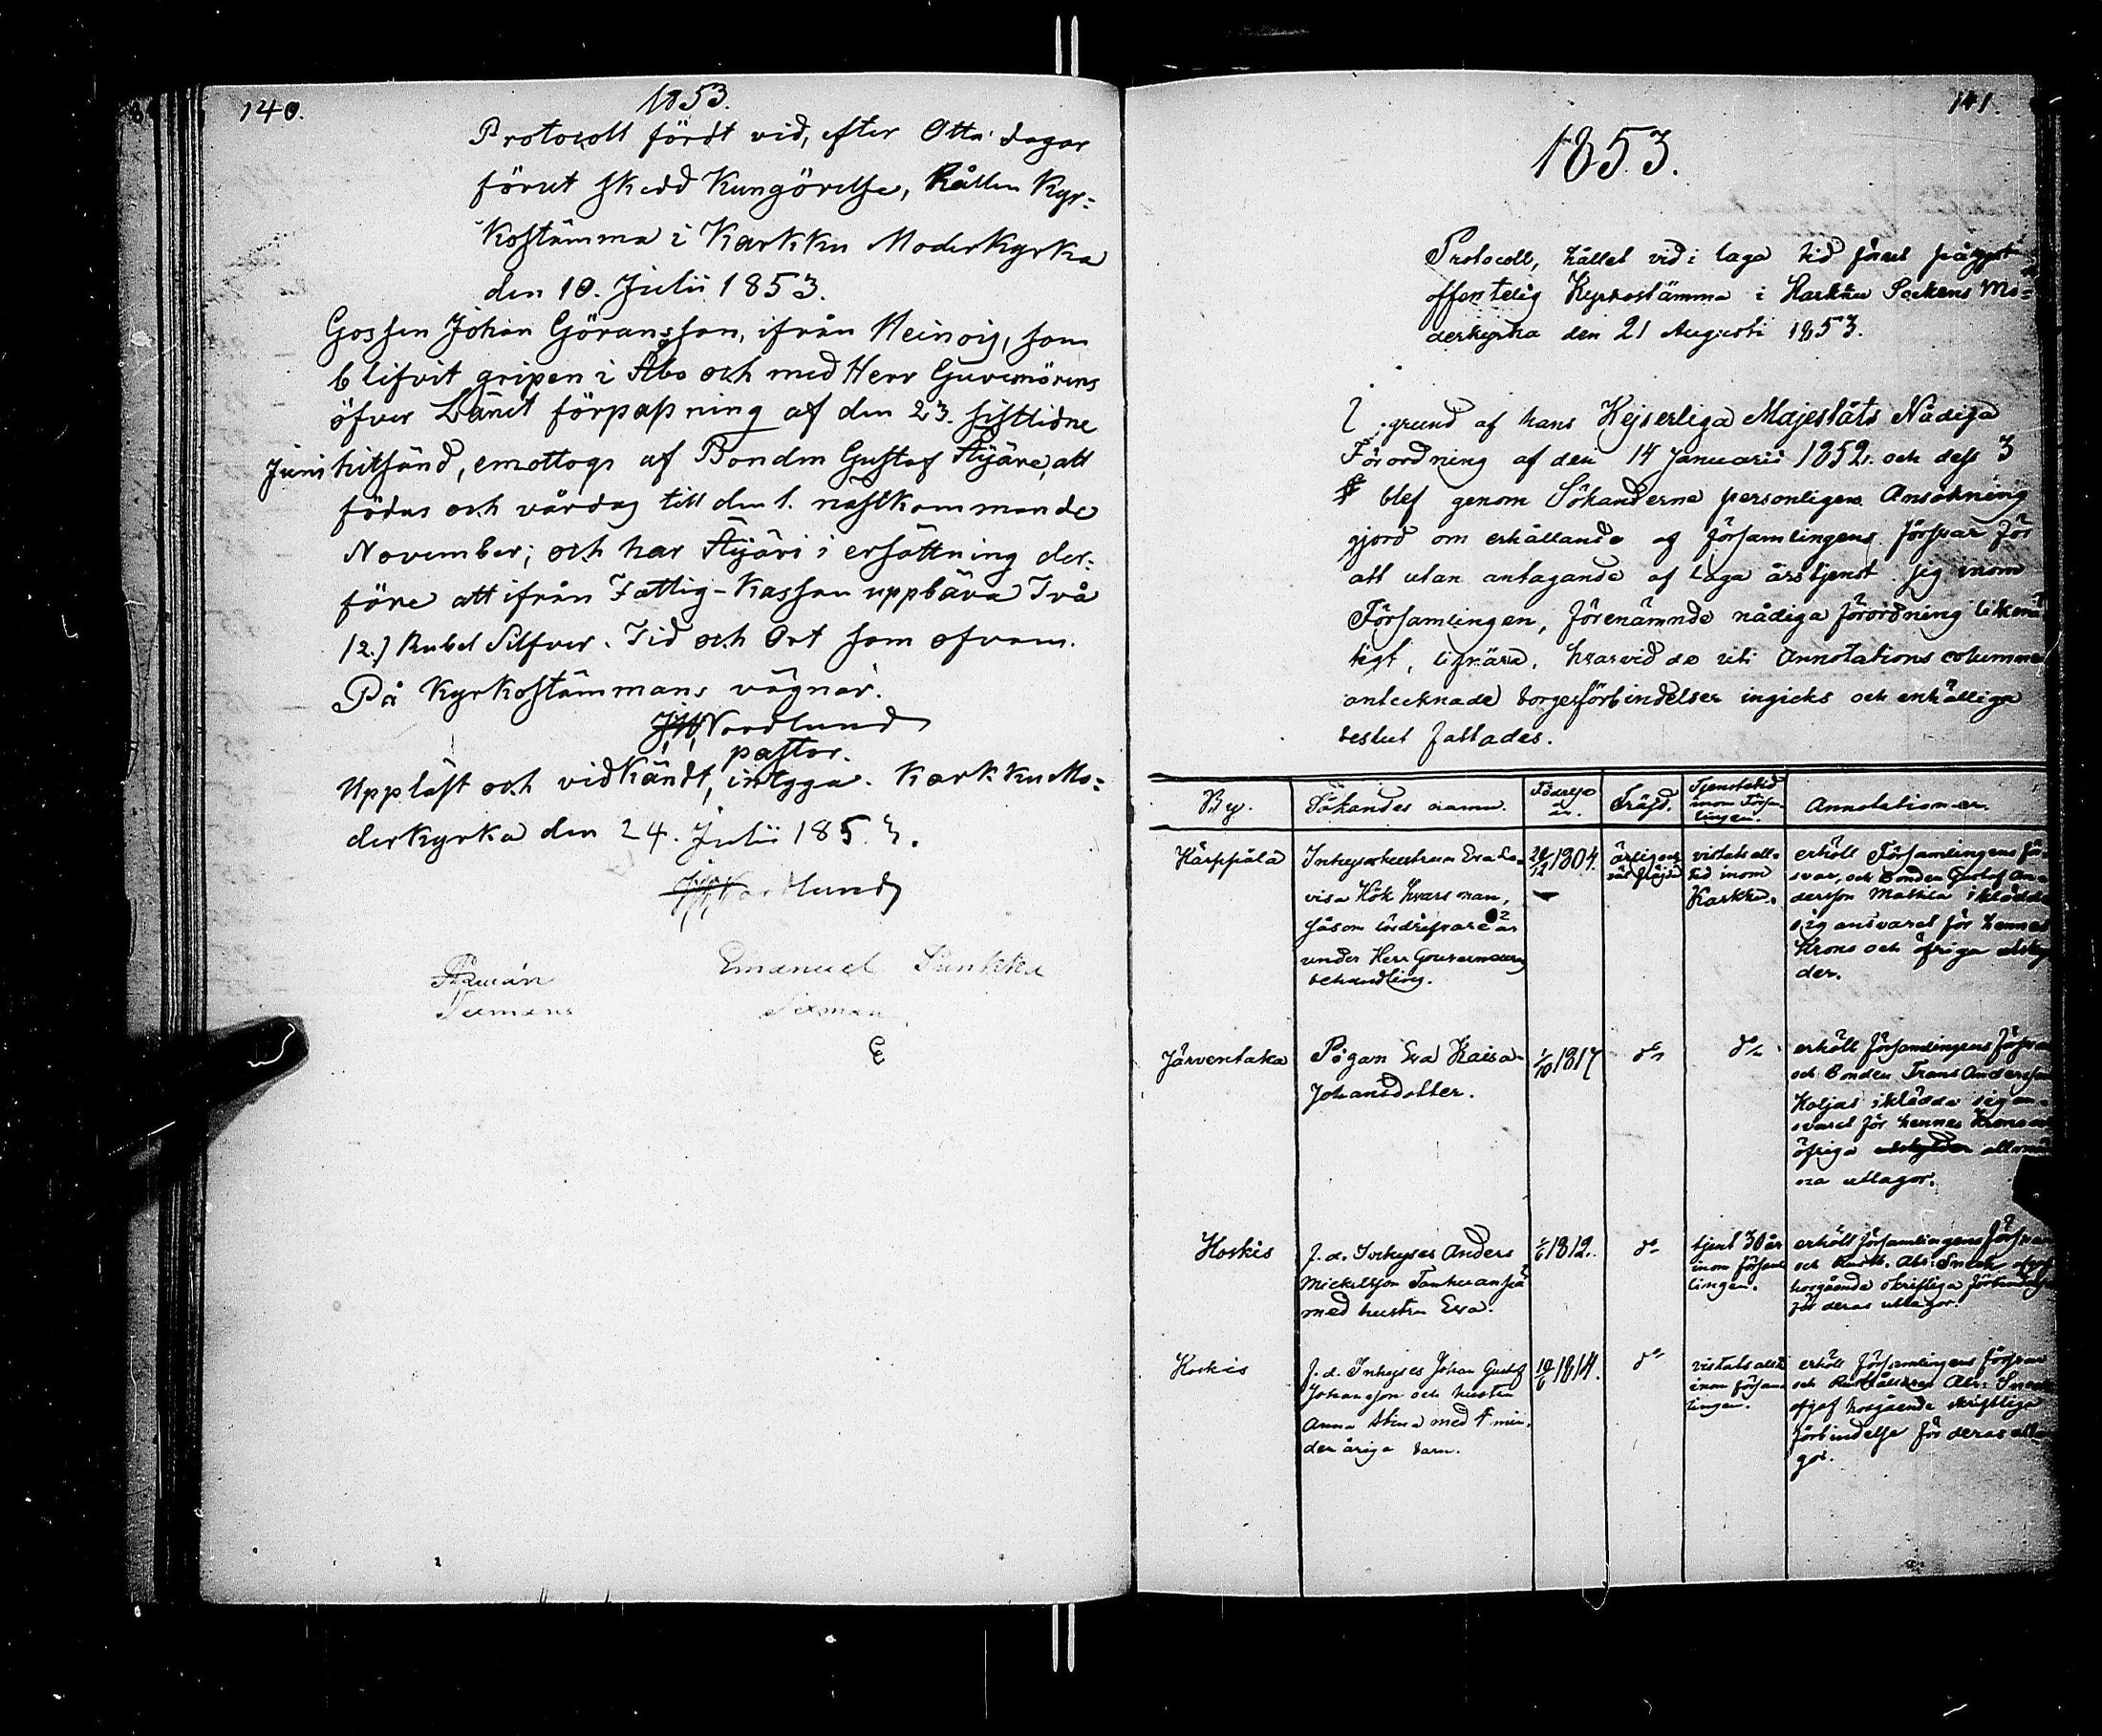 140.
1853.
Protocoll fördt vid, efter Otta dagar
förut skedd Kungörelse, hållen Kyr-
kostämma i Karkku Moderkyrka
den 10. Julii 1853.
Gossen Johan Göransson, ifrån Heinois, som
blifvit gripen i Åbo och med Herr Guvernörens
öfver Länet förpassning af den 23. sistlidne
Juni hitsänd, emottogs af Bonden Gustaf Äijäre, att
födas och vårdas till den 1. nästkommande
November; och har Äijäri i ersättning der-
före att ifrån Fattig-Kassan uppbära Två
(2.) Rubel Silfver. Tid och Ort som ofvan.
På Kyrkostämmans vägnar.
Nordlund
pastor.
Uppläst och vidkändt, intyga. Karkku Mo-
derkyrka den 24. Julii 1853.
Nordlund
Emanuel
141.
1853.
Protocoll, hållet vid i laga tid förut
offentelig Kyrkostämma i Karkku Sockens Mo-
derkyrka den 21 Augusti 1853.
I grund af hans Kejserliga Majestäts Nådiga
Förordning af den 14 Januarii 1852. och dess 3
§ blef genom Sökanderne personligen Ansökning
gjord om erhållande af församlingens försvar för
att utan antagande af laga årstjenst sig inom
Församlingen, förenämnde nådiga förordning
hvarvid de uti Annotations columnen
antecknade borgesförbindelser ingicks och enhälliga
beslut fattades.
By. Sökandes namn. Födelse Fräjd. Tjenstetid inom Försam- lingen. Annotationer.
Härppälä
Inhyseshustrun Eva Lo-
visa Hök hvars man,
såsom lösdrifvare är
under Herr Gouverneurens
behandling.
1804.
ärlig och väl fräjdad
vistats all-
tid inom
Karkku.
erhöll Församlingens för-
svar, och Bonden Gustaf An-
dersson Mattila iklädde
sig ansvaret för hennes
Krono och öfriga
der.
Järventaka
Pigan Eva Kaisa
Johansdotter.
1/10 1817
do
do
erhöll församlingens försvar
och Bonden Frans Andersson
Koljas iklädde sig an-
svaret för hennes Krono
öfriga allmän-
na utlagor.
Koskis
f.d. Inhyses Anders
Mickelsson
med hustru Eva.
1812.
do
tjent 30 år
inom försam
lingen.
erhöll församlingens försvar
och Rusth. Abr. Sneck afgaf
borgående skriftliga förbindelse
för deras utlagor.
Koskis
f.d. Inhyses Johan Gustaf
Johansson och hustru
Anna Stina med 4 min-
deråriga barn.
1814.
do
vistats alltid
inom försam
lingen.
erhöll församlingens försvar
och Rusthållaren Abr. Sneck
afgaf borgående skriftliga
förbindelse för deras utla
gor.